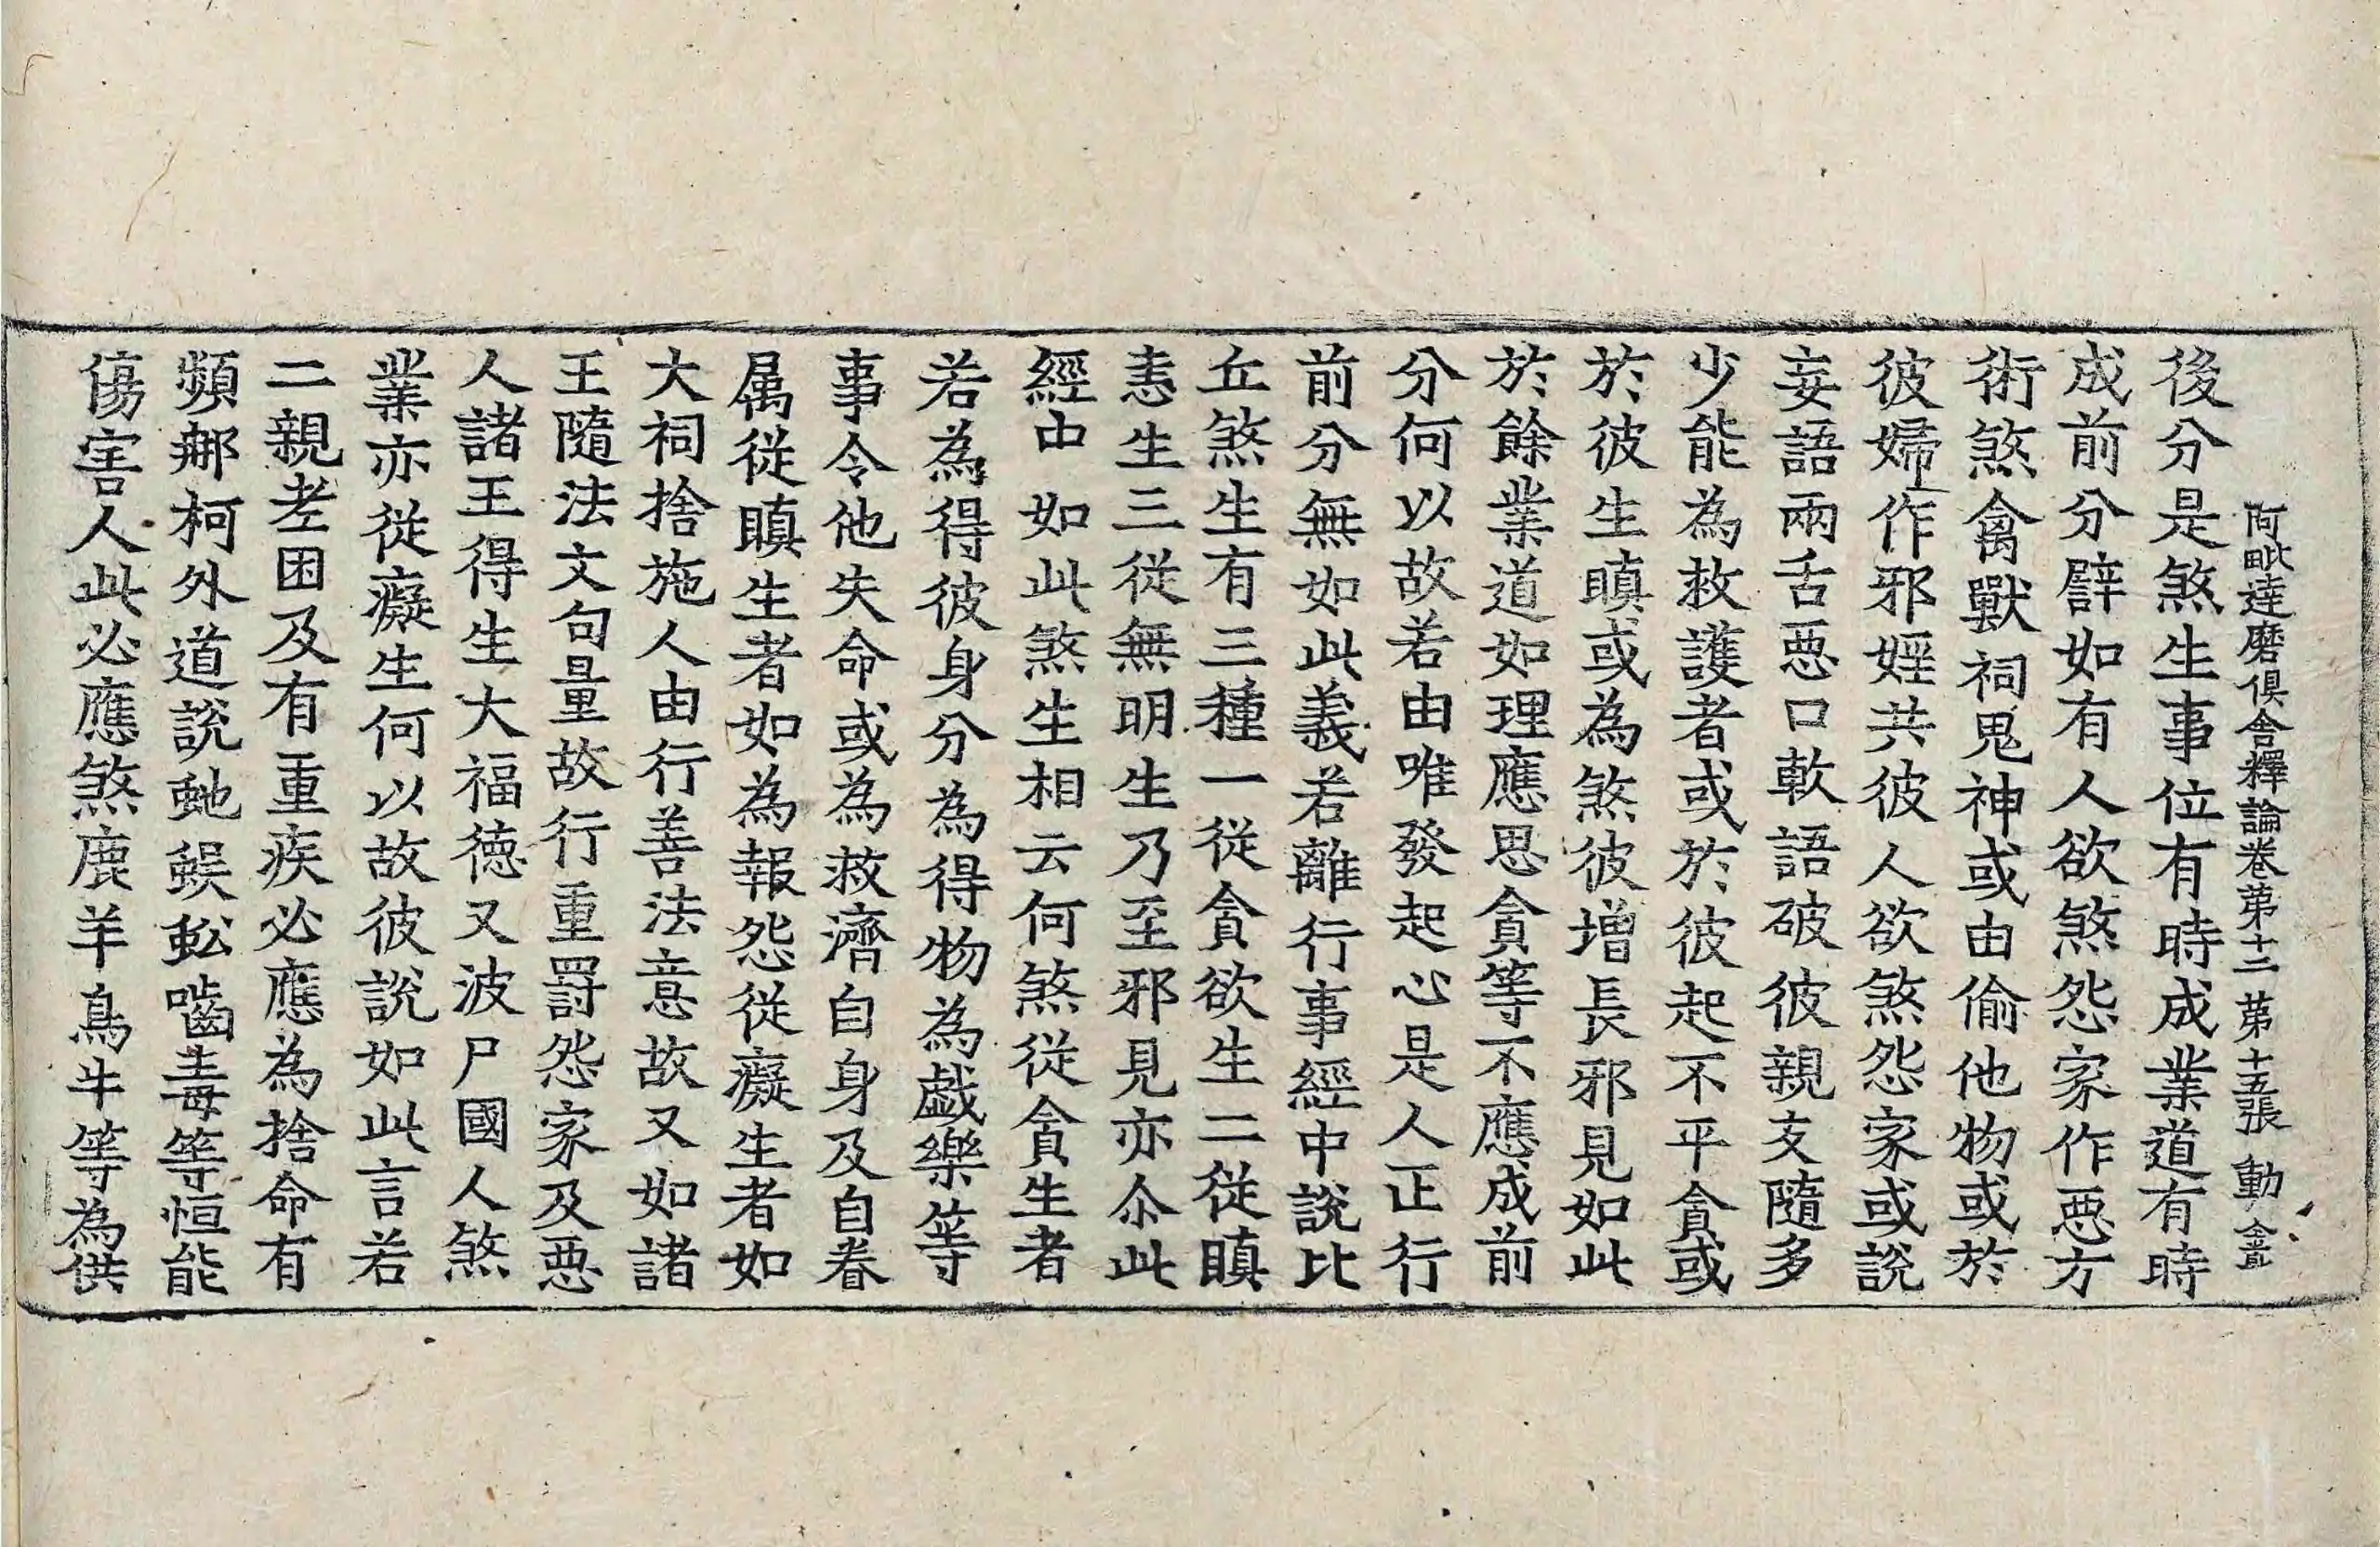 阿毗達磨俱舍釋論卷苐十二 苐十五張 動
後分是煞生事位有時成業道有時
成前分譬如有人欲煞怨家作惡方
術煞禽獸祠鬼神或由偷他物或於
彼婦上作邪婬共彼人欲煞怨家或說
妄語兩舌惡口軟語破彼親友隨多
少能為救護者或於彼起不平貪或
於彼生瞋或為煞彼增長邪見如此
於餘業道如理應思貪等不應成前
分何以故若由唯發起心是人正行
前分無如此義若離行事經中說比
丘煞生有三種一從貪欲生二從瞋
恚生三從無明生乃至邪見亦尒此
經中如此煞生相云何煞從貪生者
若為得彼身分為得物為戯樂等
事令他失命或為救濟自身及自眷
属從瞋生者如為報怨從癡生者如
大祠捨施人由行善法意故又如諸
王隨法文句量故行重罸怨家及惡
人諸王得生大福德又波尸國人煞
業亦從癡生何以故彼說如此言若
二親老困及有重疾必應為捨命有
頻那柯外道說虵蜈蚣嚙毒等恒能
傷害人此必應煞鹿羊鳥牛等為供